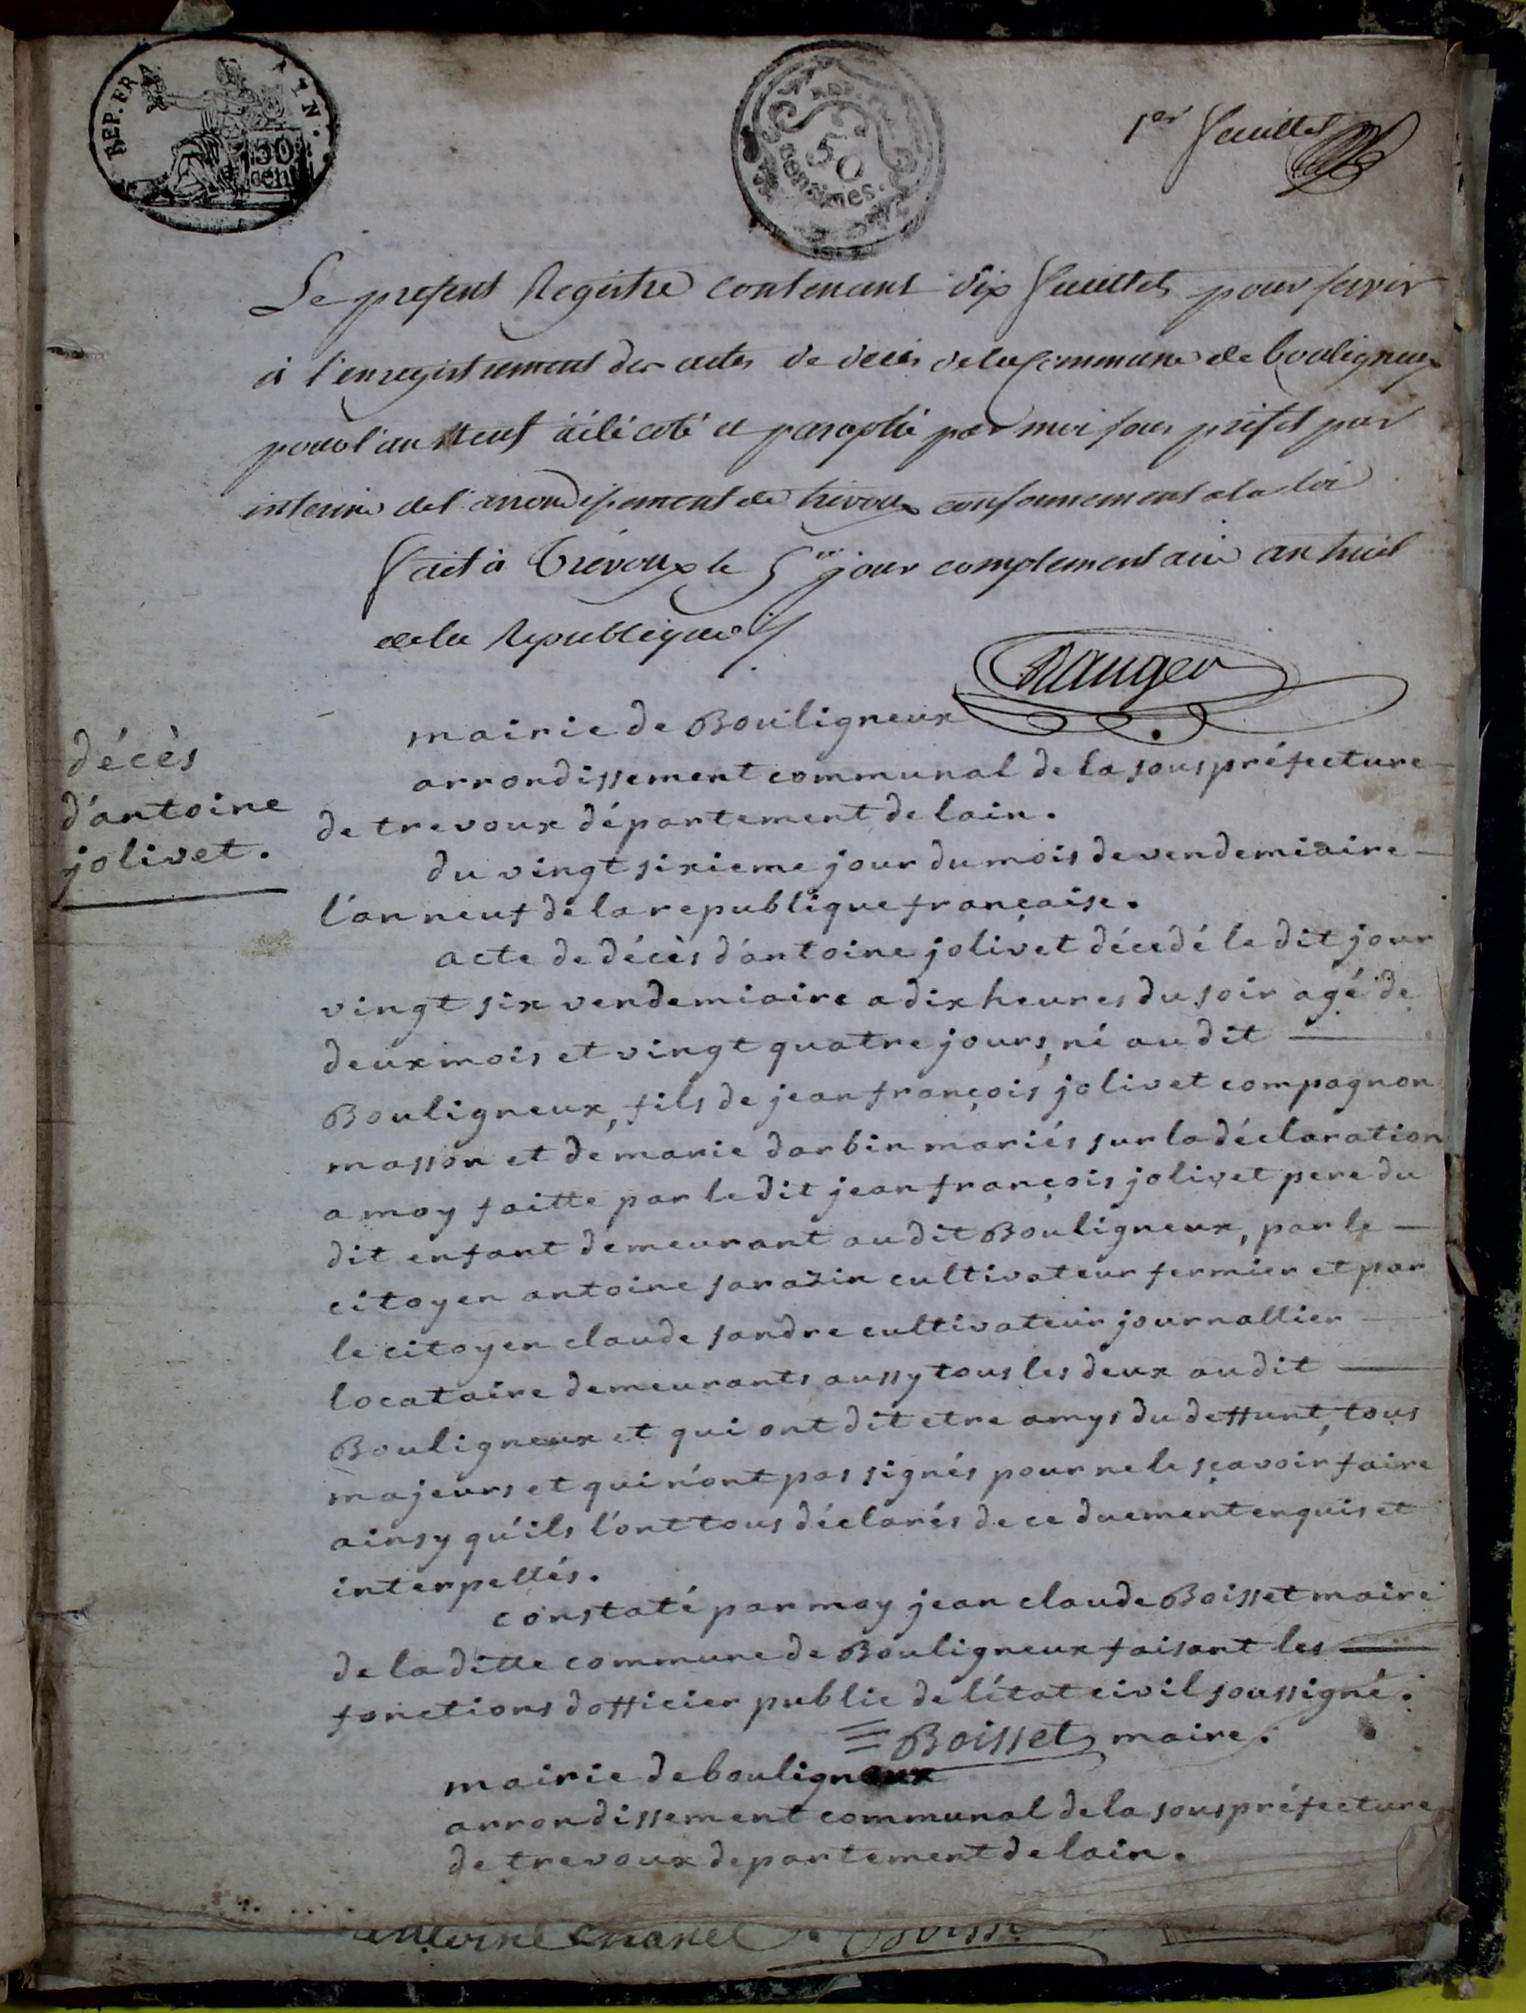 REP. FRA
50
cent
50
centimes.
1er feuillet
Le present Registre contenant dix feuillets pour servir
à l'enregistrement des actes de deces de la Commune de bouligneux
pour l'an neuf a été coté et paraphé par moi sous prefet par
interim de l'arrondissement de trevoux conformement a la loi
fait à Trévoux le 5me jour complementaire an huit
de la Republique
mairie de Bouligneux
décès
d'antoine
jolivet.
arrondissement communal de la souspréfecture
de trevoux département de lain.
du vingt sixieme jour du mois de vendemiaire
l'an neuf de la republique française.
acte de décès d'antoine jolivet décedé le dit jour
vingt six vendemiaire a dix heures du soir agé de
deux mois et vingt quatre jours, né au dit
Bouligneux, fils de jean françois jolivet compagnon
masson et de marie darbin mariés sur la déclaration
a moy faitte par le dit jean françois jolivet pere du
dit enfant demeurant au dit Bouligneux, par le
citoyen antoine sarazin cultivateur fermier et par
le citoyen claude sandre cultivateur journallier
locataire demeurants aussy tous les deux au dit
Bouligneux et qui ont dit etre amys du deffunt, tous
majeurs et qui n'ont pas signés pour ne le sçavoir faire
ainsy qu'ils l'ont tous déclarés de ce duement enquis et
interpellés.
constaté par moy jean claude Boisset maire
de la ditte commune de Bouligneux faisant les
fonctions d'officier public de l'état civil soussigné.
Boisset maire.
mairie de bouligneux
arrondissement communal de la souspréfecture
de trevoux departement de lain.